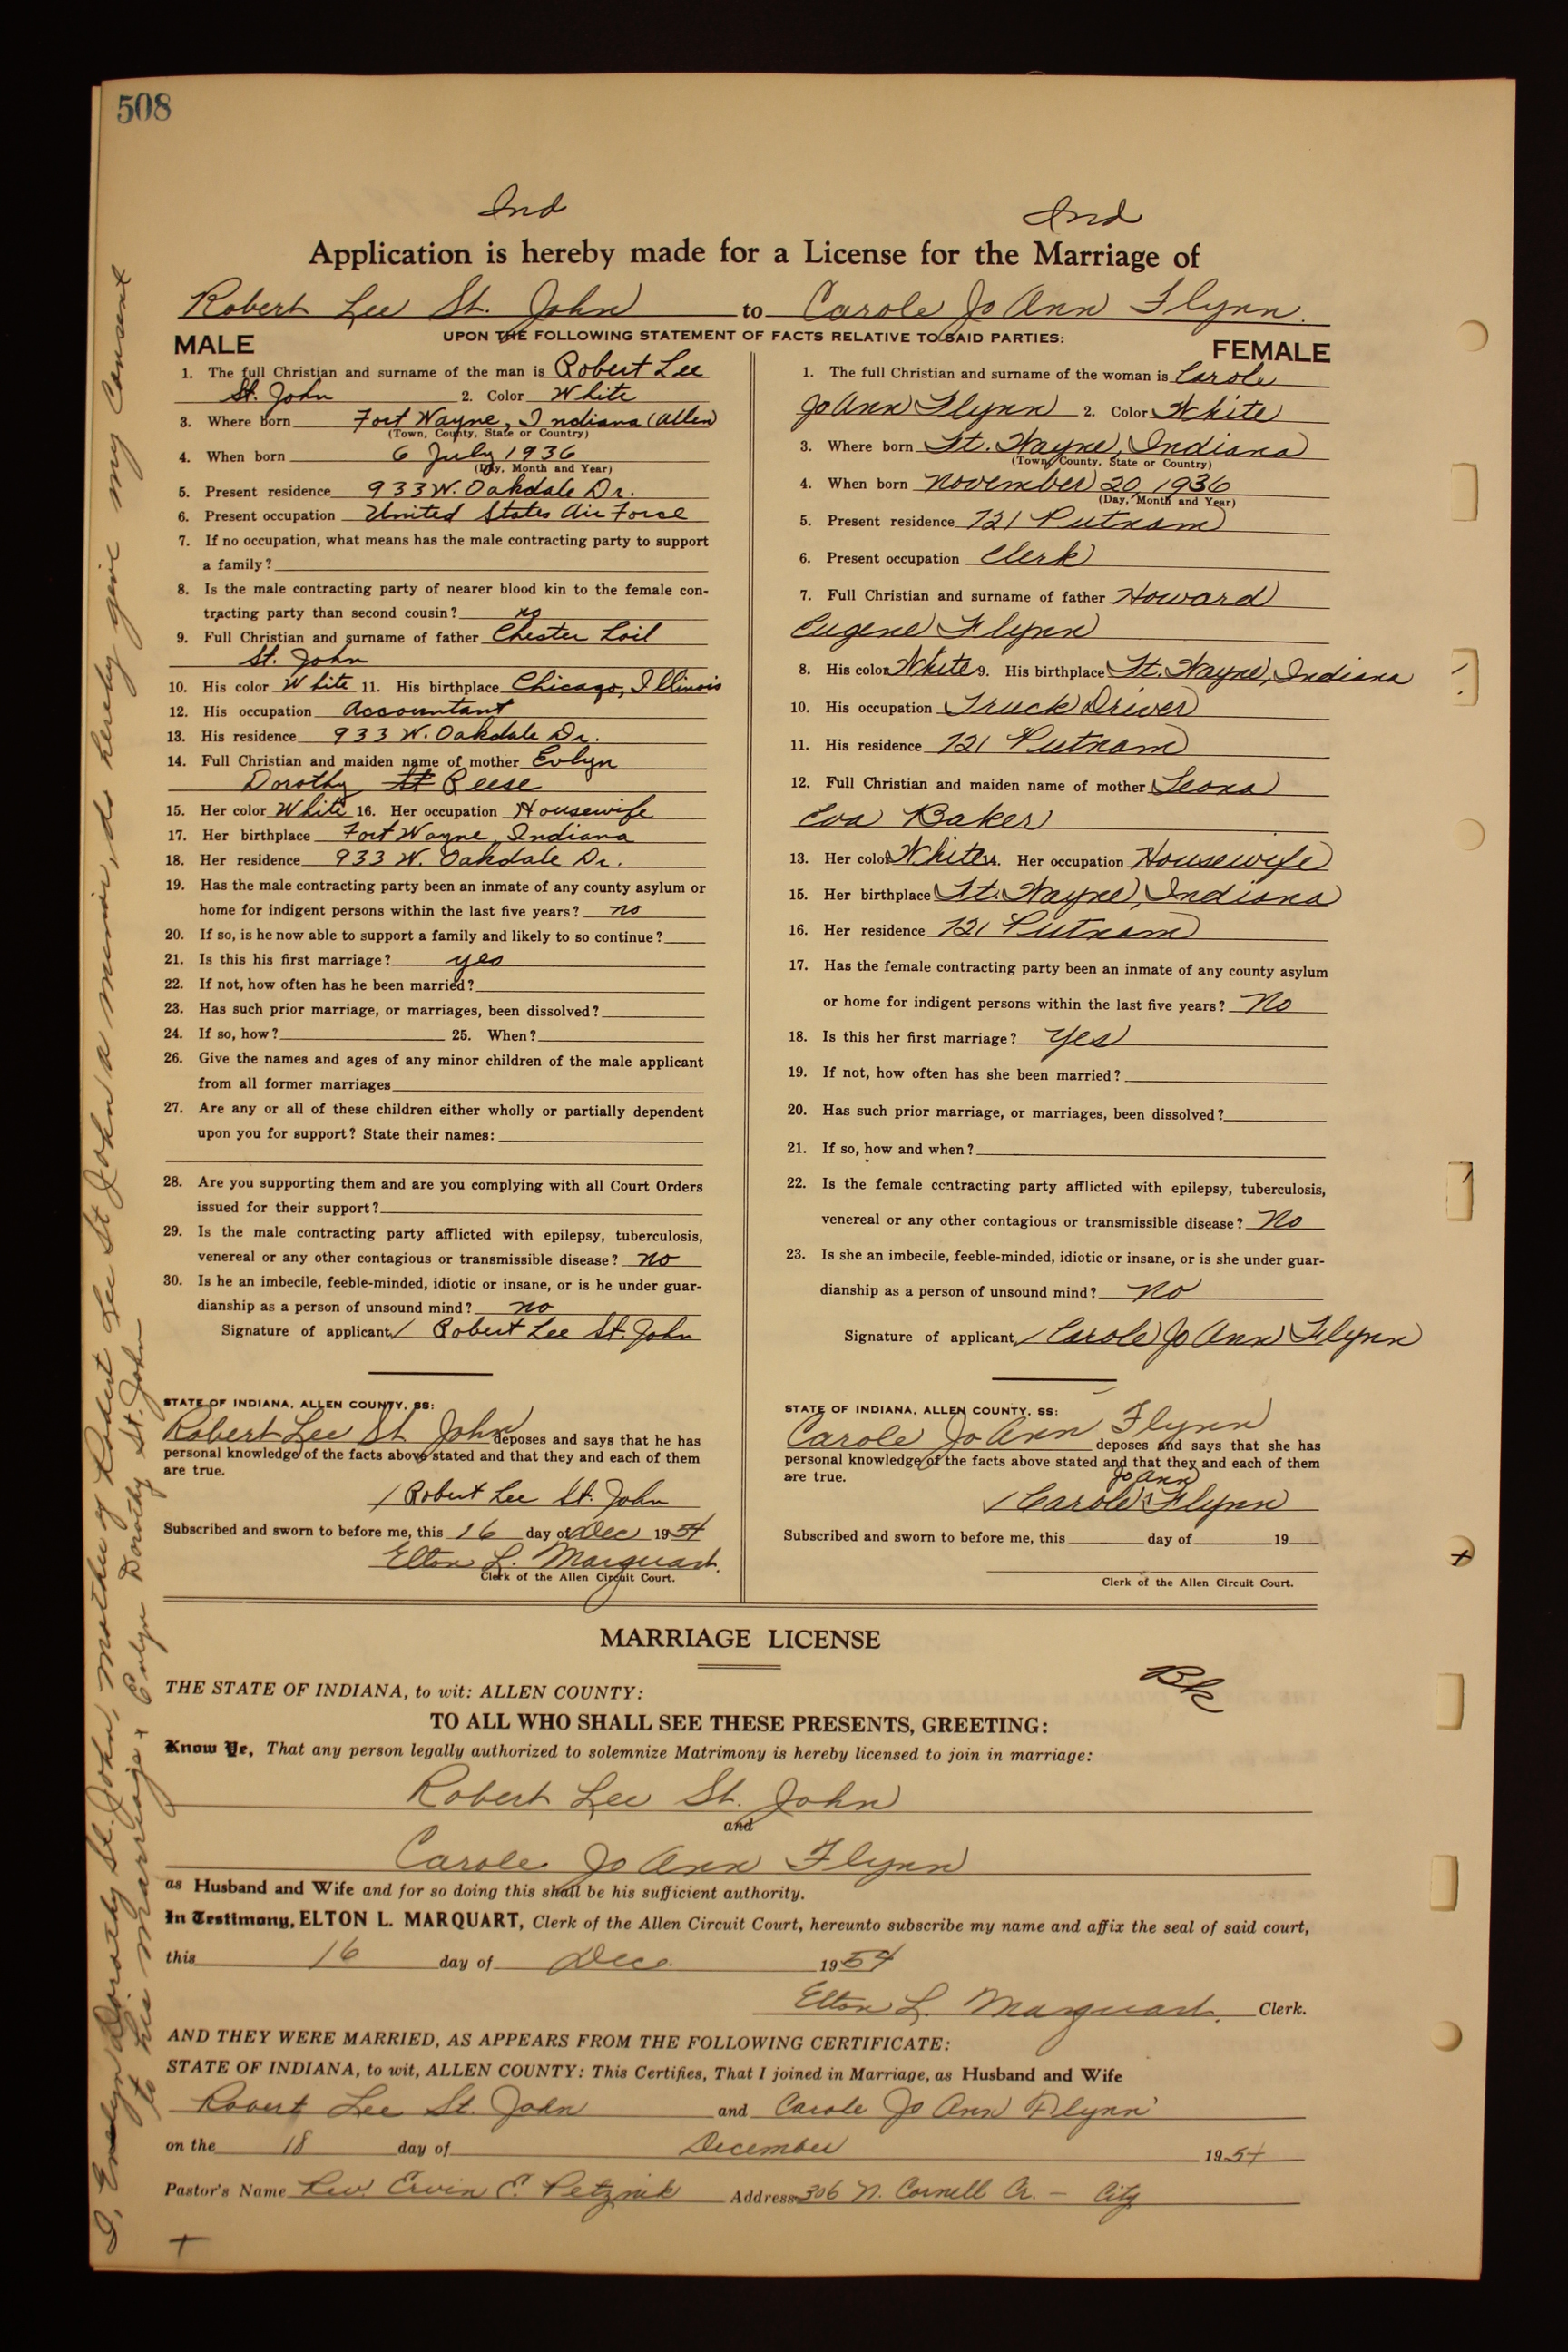 508
Ind Ind
Application is hereby made for a License for the Marriage of
Robert Lee St. John to Carole Jo Ann Flynn.
UPON THE FOLLOWING STATEMENT OF FACTS RELATIVE TO SAID PARTIES:
MALE
1. The full Christian and surname of the man is Robert Lee
St. John 2. Color White
3. Where born Fort Wayne, Indiana (Allen)
(Town, County, State or Country)
4. When born 6 July 1936
(Day, Month and Year)
5. Present residence 933 W. Oakdale Dr.
6. Present occupation United States Air Force
7. If no occupation, what means has the male contracting party to support
a family?
8. Is the male contracting party of nearer blood kin to the female con-
tracting party than second cousin? no
9. Full Christian and surname of father Chester Loil
St. John
10. His color White 11. His birthplace Chicago, Illinois
12. His occupation Accountant
13. His residence 933 W. Oakdale Dr.
14. Full Christian and maiden name of mother Evlyn
Dorothy St Reese
15. Her color White 16. Her occupation Housewife
17. Her birthplace Fort Wayne, Indiana
18. Her residence 933 W. Oakdale Dr.
19. Has the male contracting party been an inmate of any county asylum or
home for indigent persons within the last five years? no
20. If so, is he now able to support a family and likely to so continue?
21. Is this his first marriage? yes
22. If not, how often has he been married?
23. Has such prior marriage, or marriages, been dissolved?
24. If so, how? 25. When?
26. Give the names and ages of any minor children of the male applicant
from all former marriages
27. Are any or all of these children either wholly or partially dependent
upon you for support? State their names:
28. Are you supporting them and are you complying with all Court Orders
issued for their support?
29. Is the male contracting party afflicted with epilepsy, tuberculosis,
venereal or any other contagious or transmissible disease? no
30. Is he an imbecile, feeble-minded, idiotic or insane, or is he under guar-
dianship as a person of unsound mind? no
Signature of applicant / Robert Lee St. John
STATE OF INDIANA, ALLEN COUNTY, SS:
Robert Lee St John deposes and says that he has
personal knowledge of the facts above stated and that they and each of them
are true.
/ Robert Lee St. John
Subscribed and sworn to before me, this 16 day of Dec 1954
Elton L. Marquart.
Clerk of the Allen Circuit Court.
FEMALE
1. The full Christian and surname of the woman is Carole
Jo Ann Flynn 2. Color White
3. Where born Ft. Wayne, Indiana
(Town, County, State or Country)
4. When born November 20 1936
(Day, Month and Year)
5. Present residence 721 Putnam
6. Present occupation Clerk
7. Full Christian and surname of father Howard
Eugene Flynn
8. His color White 9. His birthplace Ft. Wayne, Indiana
10. His occupation Truck Driver
11. His residence 721 Putnam
12. Full Christian and maiden name of mother Leona
Eva Baker
13. Her color White 14. Her occupation Housewife
15. Her birthplace Ft. Wayne, Indiana
16. Her residence 721 Putnam
17. Has the female contracting party been an inmate of any county asylum
or home for indigent persons within the last five years? No
18. Is this her first marriage? Yes
19. If not, how often has she been married?
20. Has such prior marriage, or marriages, been dissolved?
21. If so, how and when?
22. Is the female contracting party afflicted with epilepsy, tuberculosis,
venereal or any other contagious or transmissible disease? No
23. Is she an imbecile, feeble-minded, idiotic or insane, or is she under guar-
dianship as a person of unsound mind? No
Signature of applicant, / Carole Jo Ann Flynn
STATE OF INDIANA, ALLEN COUNTY, SS:
Carole Jo Ann Flynn deposes and says that she has
personal knowledge of the facts above stated and that they and each of them
are true.
Jo Ann
/ Carole Flynn
Subscribed and sworn to before me, this day of 19
Clerk of the Allen Circuit Court.
MARRIAGE LICENSE
Bk
THE STATE OF INDIANA, to wit: ALLEN COUNTY:
TO ALL WHO SHALL SEE THESE PRESENTS, GREETING:
Know Ye, That any person legally authorized to solemnize Matrimony is hereby licensed to join in marriage:
Robert Lee St. John
and
Carole Jo Ann Flynn
as Husband and Wife and for so doing this shall be his sufficient authority.
In Testimony, ELTON L. MARQUART, Clerk of the Allen Circuit Court, hereunto subscribe my name and affix the seal of said court,
this 16 day of Dec. 1954
Elton L. Marquart. Clerk.
AND THEY WERE MARRIED, AS APPEARS FROM THE FOLLOWING CERTIFICATE:
STATE OF INDIANA, to wit, ALLEN COUNTY: This Certifies, That I joined in Marriage, as Husband and Wife
Robert Lee St. John and Carole Jo Ann Flynn
on the 18 day of December 1954
Pastor's Name Rev. Ervin E. Petznik Address 306 N. Cornell Cr. - City
I, Evelyn Dorothy St. John, mother of Robert Lee St John a minor, do hereby give my Consent
to his marriage. x Evlyn Dorothy St. John